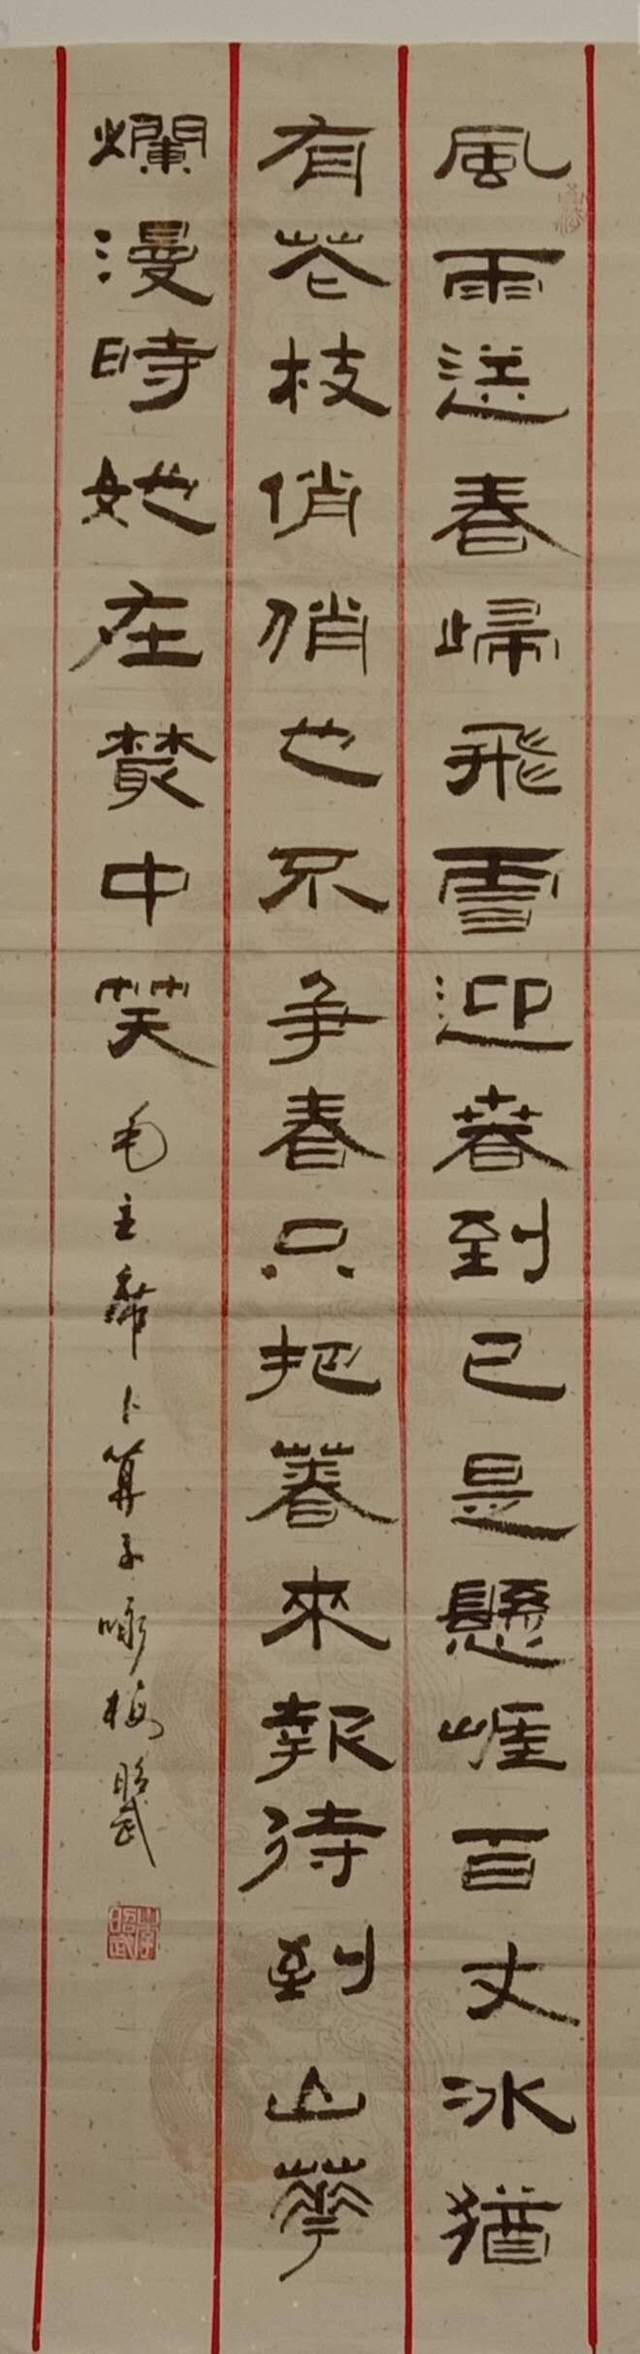 風雨送春歸飛雪迎春到已是懸崖百丈冰猶
有花枝俏俏也不爭春只把春來報待到山華
爛漫時她在叢中笑
毛主席卜算子咏梅 昭武
李昭武